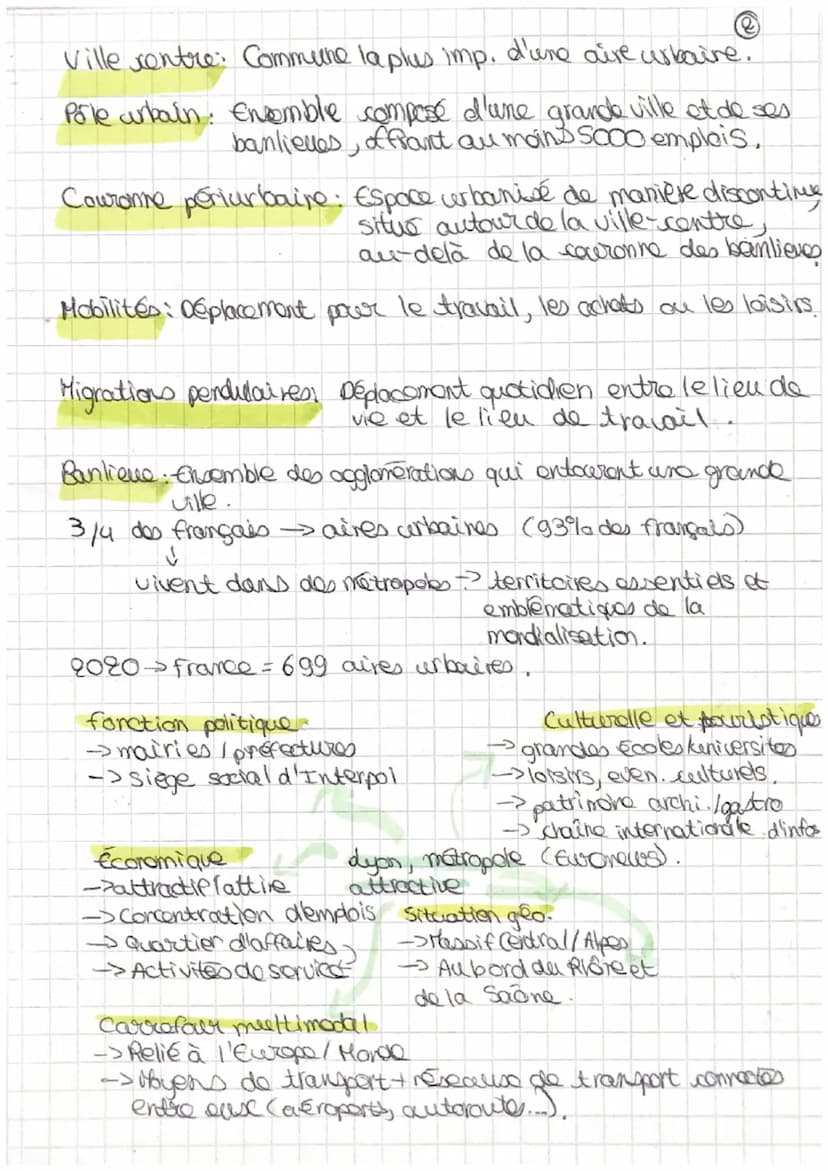 ②
Ville centre: Commune la plus imp. d'une aire urbaine.
Pôle urbain: Ensemble composé d'une grande ville et de ses
banlieues, offrant au moins 5000 emplois.
Couronne périurbaire: Espace urbanisé de manière discontinue
situé autour de la ville-centre,
au-delà de la couronne des banlieues
Mobilités: Déplacement pour le travail, les achats ou les loisirs.
Migrations pendulaires: Déplacement quotidien entre le lieu de
vie et le lieu de travail.
Banlieue: Ensemble des agglomérations qui entourent une grande
ville.
3/4 des français → aires urbaines (93% des français)
↓
vivent dans des métropoles → territoires essentiels et
emblématiques de la
mondialisation.
2020 → france = 699 aires urbaires.
fonction politique
→ mairies / préfectures
-> siège social d'Interpol
Culturelle et touristique
→ grandes écoles/universités
→ loisirs, even. culturels.
→ patrimoire archi./gastro
→ chaîne internationale d'infos
(Euronews).
Lyon, métropole
attractive
Économique
→ attractif/attire
→ Concentration d'emplois
→ Quartier d'affaires
→ Activités de service
Situation géo.
→ Massif Central / Alpes
→ Au bord du Rhône et
de la Saône.
Carrefour multimodal
→ Relié à l'Europe / Monde
→ Moyens de transport + réseaux de transport connectés
entre eux (aéroports, autoroutes...).